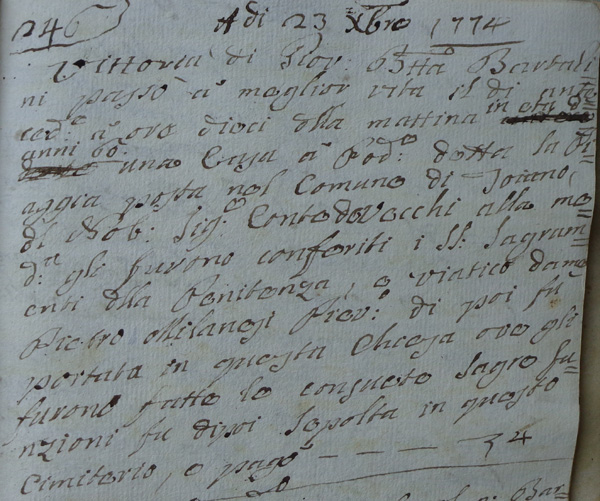 246 A di 23 Xbre 1774
Vittoria di Giov: Btta Bartali=
ni passò a miglior vita il di ante
ced.e a ore dieci dlla mattina in età d'
anni 60: una Casa a Pod.e detta la Pi=
aggia posta nel Comune di Toiano,
dl Nob: Sig.e Conte deVecchi alla me=
d.a gli furono conferiti i SS. Sagram=
enti dlla Penitenza, e viatico da me
Pietro Milanesi Piev.o di poi fu
portata in questa Chiesa ove gli
furono fatte le consuete sagre fu=
nzioni fu dipoi sepolta in questo
Cimiterio, e pagò - - - - 34